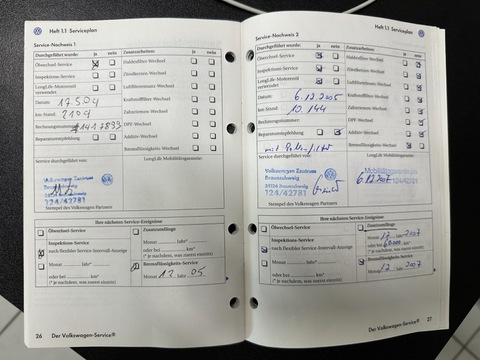 Heft 1.1 Serviceplan
Service-Nachweis 1
Durchgeführt wurde: ja nein
Ölwechsel-Service
Inspektions-Service
LongLife-Motorenöl verwendet
Datum: 17.5.04
km-Stand: 2104
Rechnungsnummer:
Reparaturempfehlung
Service durchgeführt von:
Volkswagen Zentrum
Braunschweig
38124 Braunschweig
124/42781
Stempel des Volkswagen Partners
Zusatzarbeiten: ja nein
Pollenfilter-Wechsel
Zündkerzen-Wechsel
Luftfiltereinsatz-Wechsel
Kraftstofffilter-Wechsel
Zahnriemen-Wechsel
DPF-Wechsel
Additiv-Wechsel
Bremsflüssigkeits-Wechsel
LongLife Mobilitätsgarantie:
Ihre nächsten Service-Ereignisse
Ölwechsel-Service
Inspektions-Service
nach flexibler Service-Intervall-Anzeige
Monat Jahr*
oder bei km*
(* je nachdem, was zuerst eintritt)
Zusatzumfänge
Monat Jahr*
oder bei km*
(* je nachdem, was zuerst eintritt)
Bremsflüssigkeits-Service
Monat 12 Jahr 05
26 Der Volkswagen-Service®
Heft 1.1 Serviceplan
Service-Nachweis 2
Durchgeführt wurde: ja nein
Ölwechsel-Service
Inspektions-Service
LongLife-Motorenöl verwendet
Datum: 6.12.2005
km-Stand: 10.144
Rechnungsnummer:
Reparaturempfehlung
mit Pollenfilter
Service durchgeführt von:
Volkswagen Zentrum
Braunschweig
38124 Braunschweig
124/42781
Stempel des Volkswagen Partners
Zusatzarbeiten: ja nein
Pollenfilter-Wechsel
Zündkerzen-Wechsel
Luftfiltereinsatz-Wechsel
Kraftstofffilter-Wechsel
Zahnriemen-Wechsel
DPF-Wechsel
Additiv-Wechsel
Bremsflüssigkeits-Wechsel
LongLife Mobilitätsgarantie:
Mobilitätsgarantie bis
6.12.2007 124/42781
Ihre nächsten Service-Ereignisse
Ölwechsel-Service
Inspektions-Service
nach flexibler Service-Intervall-Anzeige
Monat Jahr*
oder bei km*
(* je nachdem, was zuerst eintritt)
Zusatzumfänge
Monat 12 Jahr* 2007
oder bei 60000 km*
(* je nachdem, was zuerst eintritt)
Bremsflüssigkeits-Service
Monat 12 Jahr 2007
Der Volkswagen-Service® 27